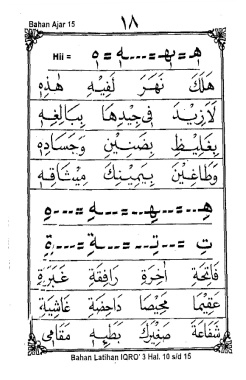 Bahan Ajar 15
١٨
Hii = هـ = ـهـ = ـه = ه
هَلَكَ نَهَرَ لَفِيْهِ هٰذِهِ
لَازِيْدَ فِيْ جِيْدِهَا بِبَالِغِهِ
بِغَلِيْظٍ بِضَنِيْنٍ وَجَسَادِهِ
وَطَاغِيْنَ بِيَمِيْنِكَ مِيْثَاقِهِ
هـ = ـهـ = ـه = ه
ت = ـتـ = ـة = ة
فَاتِحَةِ اٰخِرَةِ رَافِقَةِ غَبَرَةِ
عَقِيْمًا مَحِيْصًا دَاحِضَةِ غَاشِيَةِ
شَفَاعَةَ صَغِيْرَكَ مَقَامِيْ
Bahan Latihan IQRO' 3 Hal. 10 s/d 15